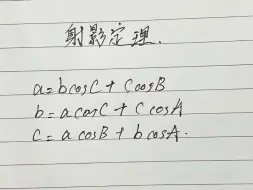 射影定理.
a=bcosC+ccosB
b=acosC+ccosA
c=acosB+bcosA.